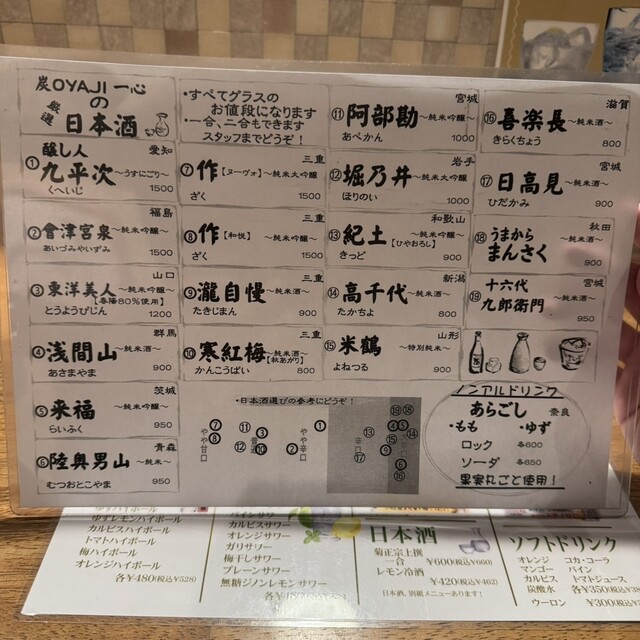 炭OYAJI 一心
の
厳選
日本酒
・すべてグラスの
お値段になります
・一合、二合もできます
スタッフまでどうぞ!
① 醸し人 愛知
九平次 〜うすにごり〜
くへいじ 1500
福島
② 會津宮泉 〜純米吟醸〜
あいづみやいずみ 1500
山口
③ 東洋美人 〜純米吟醸〜
【春陽80%使用】
とうようびじん 1200
群馬
④ 浅間山 〜純米酒〜
あさまやま 900
茨城
⑤ 来福 〜純米吟醸〜
らいふく 950
青森
⑥ 陸奥男山 〜純米〜
むつおとこやま 950
三重
⑦ 作【ヌーヴォ】 〜純米大吟醸
ざく 1500
三重
⑧ 作【和悦】 〜純米吟醸〜
ざく 1500
三重
⑨ 瀧自慢 〜純米酒〜
たきじまん 900
三重
⑩ 寒紅梅 〜純米酒〜
【秋あがり】
かんこうばい 800
宮城
⑪ 阿部勘 〜純米吟醸〜
あべかん 1000
岩手
⑫ 堀乃井 〜純米大吟醸
ほりのい 1000
和歌山
⑬ 紀土 〜純米吟醸〜
【ひやおろし】
きっど 900
新潟
⑭ 高千代 〜純米酒〜
たかちよ 800
山形
⑮ 米鶴 〜特別純米〜
よねつる 900
滋賀
⑯ 喜楽長 〜純米酒〜
きらくちょう 800
宮城
⑰ 日高見 〜純米酒〜
ひだかみ 900
秋田
⑱ うまから 〜純米酒〜
まんさく 900
宮城
⑲ 十六代 〜純米酒〜
九郎衛門 950
・日本酒選びの参考にどうぞ!
⑦
⑧
やや甘口
⑪
⑫
③
普通
⑩
②
①
やや辛口
⑬
辛口
⑰
⑲⑱
④⑤⑭
⑮
⑨
⑥
⑯
ノンアルドリンク
あらごし 奈良
・もも ・ゆず
ロック 各600
ソーダ 各650
果実丸ごと使用!
ゆずハイボール
ゆずレモンハイボール
カルピスハイボール
トマトハイボール
梅ハイボール
オレンジハイボール
各¥480(税込¥528)
パインサワー
カルピスサワー
オレンジサワー
ガリサワー
梅干しサワー
プレーンサワー
無糖ジンレモンサワー
日本酒
菊正宗上撰
一合 ¥600(税込¥660)
レモン冷酒
¥420(税込¥462)
日本酒、別紙メニューあります!
ソフトドリンク
オレンジ コカ・コーラ
マンゴー パイン
カルピス トマトジュース
炭酸水 各¥350(税込¥38
ウーロン ¥300(税込¥3